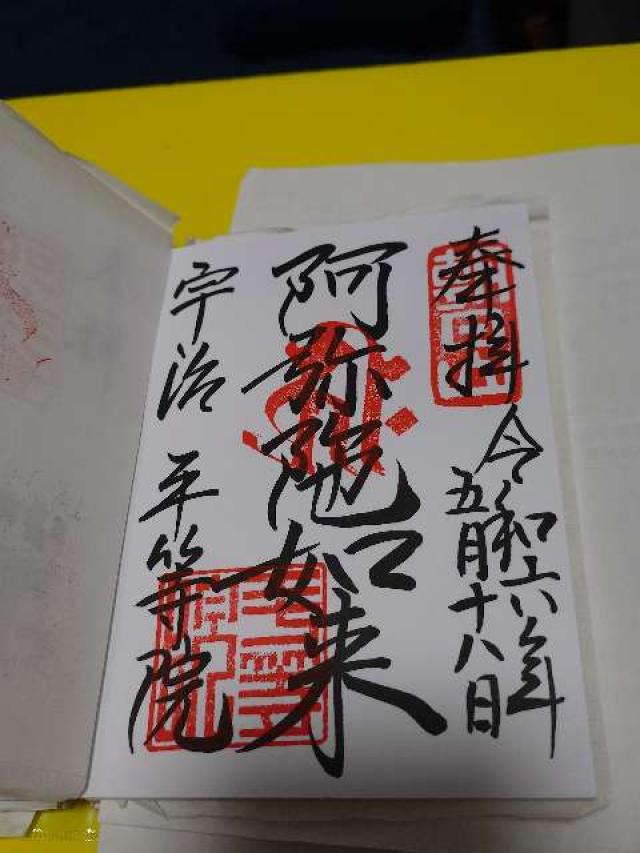 奉拝
令和六年
五月十八日
阿弥陀如来
宇治 平等院